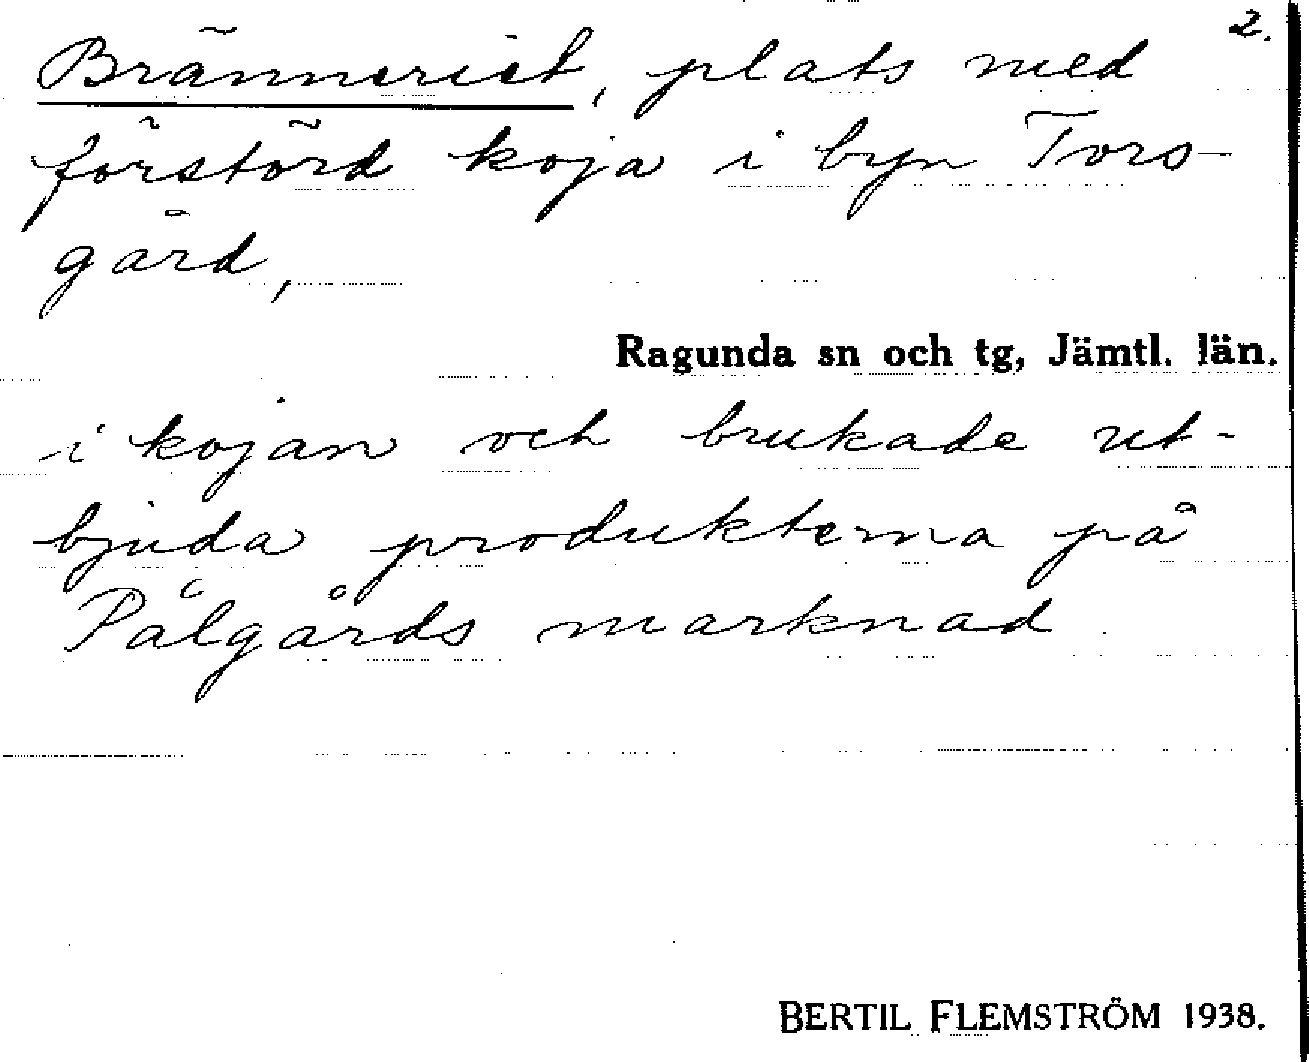 2.
Bränneriet, plats med
förstörd koja i byn Tors-
gård,
Ragunda sn och tg, Jämtl. län.
i kojan och brukade ut-
bjuda produkterna på
Pålgårds marknad.
BERTIL FLEMSTRÖM 1938.